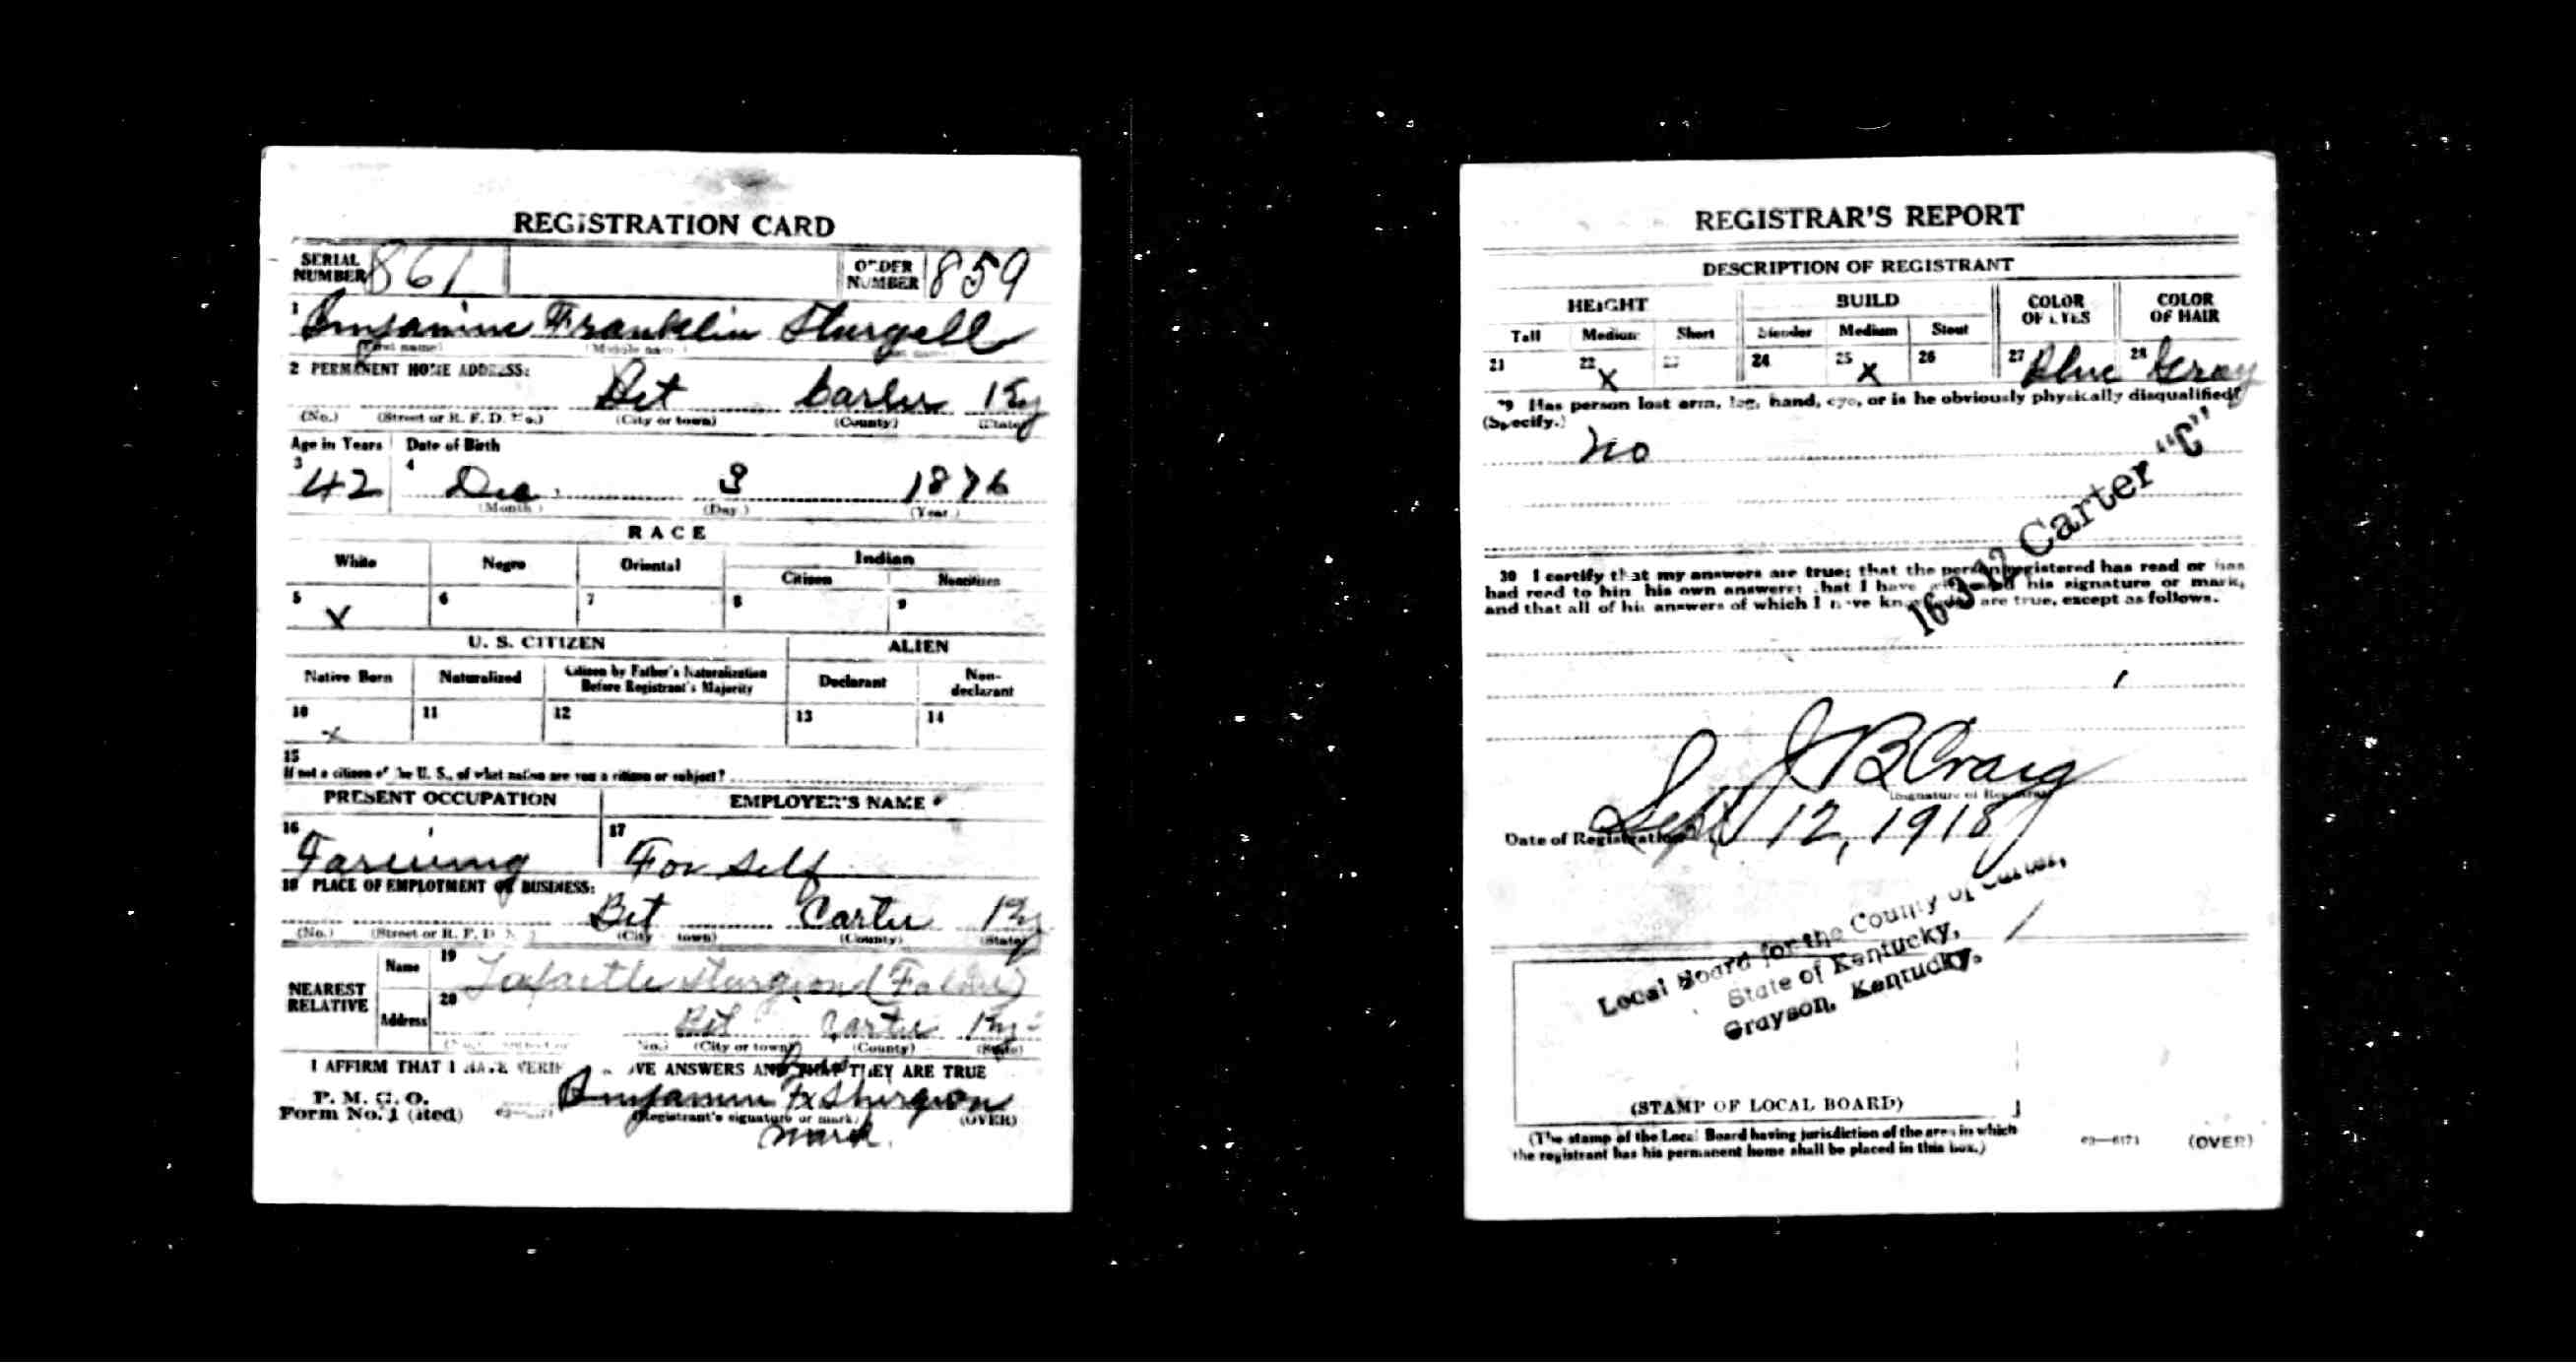 REGISTRATION CARD
SERIAL NUMBER 861 ORDER NUMBER 859
1 Benjamine Franklin Sturgell
(First name) (Middle name) (Last name)
2 PERMANENT HOME ADDRESS:
Bet Carter Ky
(No.) (Street or R. F. D. No.) (City or town) (County) (State)
Age in Years Date of Birth
3 42 4 Dec. 3 1876
(Month.) (Day.) (Year.)
RACE
White Negro Oriental Indian
Citizen Noncitizen
5 X 6 7 8 9
U. S. CITIZEN ALIEN
Native Born Naturalized Citizen by Father's Naturalization Before Registrant's Majority Declarant Non-declarant
10 X 11 12 13 14
15
If not a citizen of the U. S., of what nation are you a citizen or subject?
PRESENT OCCUPATION EMPLOYER'S NAME
16 Farming 17 For self
18 PLACE OF EMPLOYMENT OR BUSINESS:
Bet Carter Ky
(No.) (Street or R. F. D. No.) (City or town) (County) (State)
NEAREST RELATIVE
Name 19 Lafaette Sturgeond (Father)
Address 20 Bet Carter Ky
No.) (City or town) (County) (State)
I AFFIRM THAT I HAVE VERIFIED ABOVE ANSWERS AND THAT THEY ARE TRUE
P. M. G. O.
Form No. 1 (ited)
Benjamin F x Sturgeon
(Registrant's signature or mark) (OVER)
mark.
REGISTRAR'S REPORT
DESCRIPTION OF REGISTRANT
HEIGHT BUILD COLOR OF EYES COLOR OF HAIR
Tall Medium Short Slender Medium Stout
21 22 X 23 24 25 X 26 27 Blue 28 Gray
29 Has person lost arm, leg, hand, eye, or is he obviously physically disqualified?
(Specify.)
no
16-3-12 Carter "C"
30 I certify that my answers are true; that the person registered has read or has
had read to him his own answers; that I have witnessed his signature or mark,
and that all of his answers of which I have knowledge are true, except as follows.
J B Craig
(Signature of Registrar)
Date of Registration Sept 12, 1918
Local Board for the County of Carter,
State of Kentucky,
Grayson, Kentucky.
(STAMP OF LOCAL BOARD)
(The stamp of the Local Board having jurisdiction of the area in which
the registrant has his permanent home shall be placed in this box.)
03—6171 (OVER)